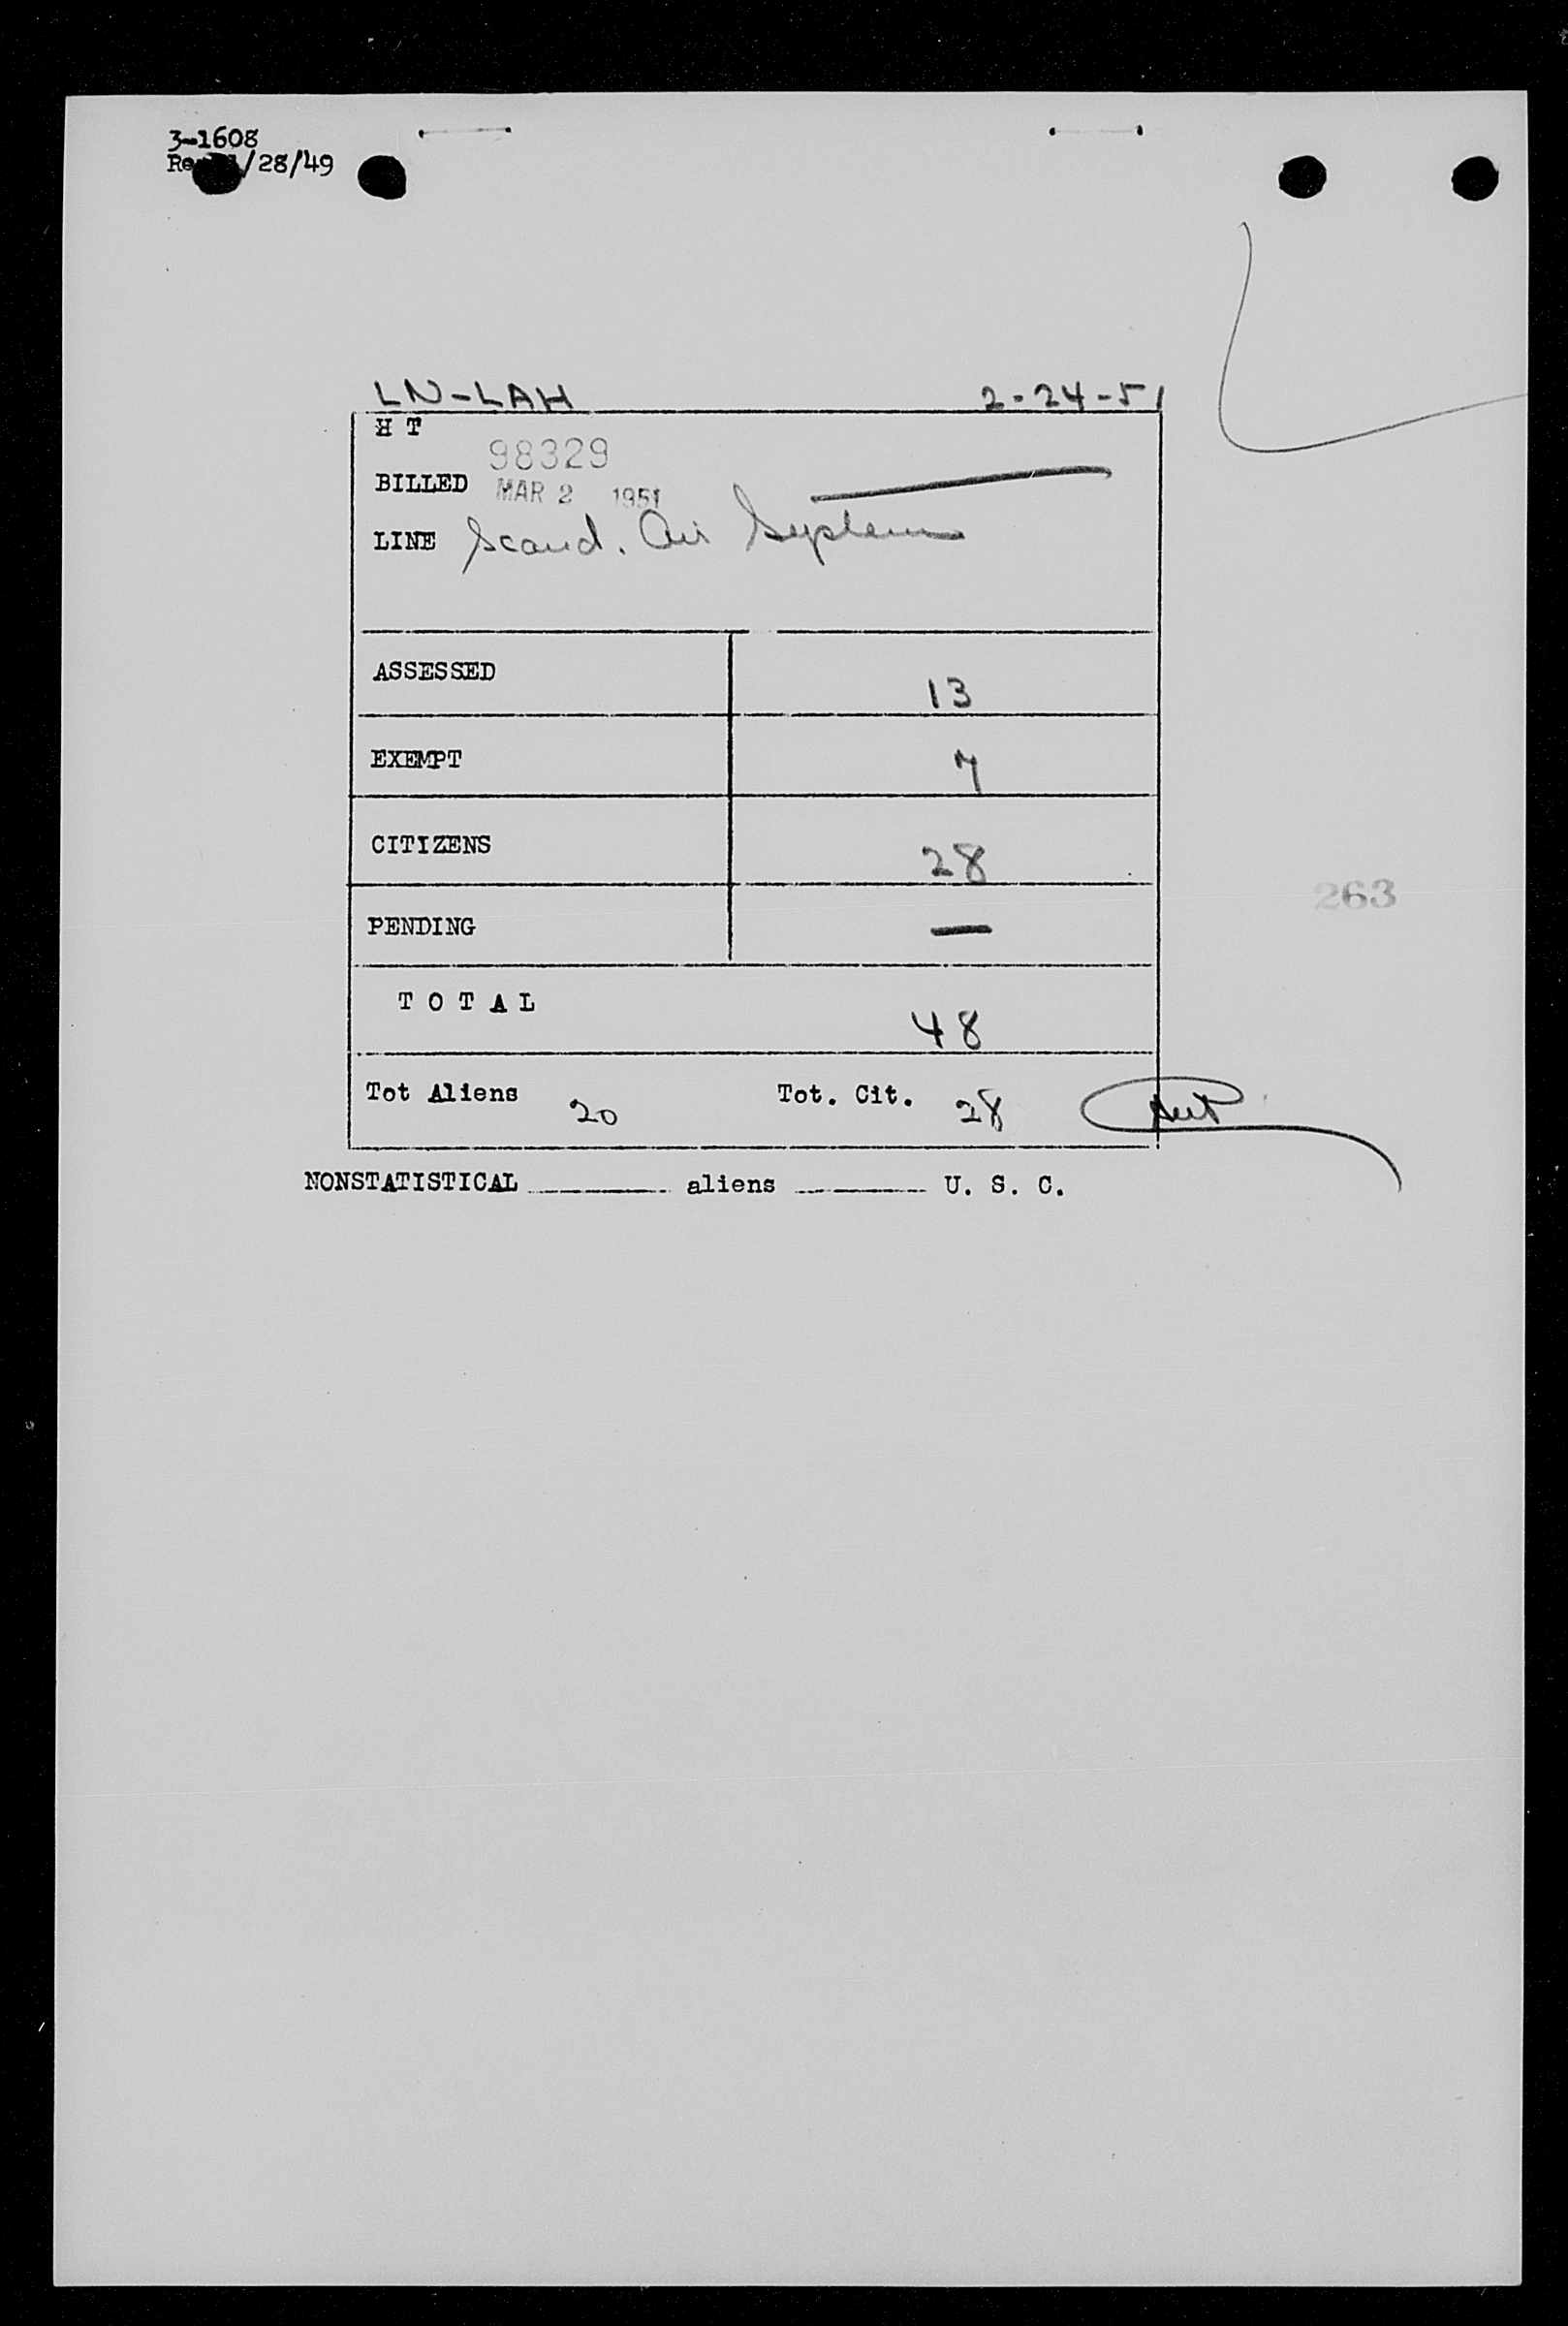 3-1608
/28/49
LN-LAH 2-24-51
H T
98329
BILLED MAR 2 1951
LINE Scand. Air System
ASSESSED 13
EXEMPT 7
CITIZENS 28
263
PENDING —
T O T A L 48
Tot Aliens 20 Tot. Cit. 28
NONSTATISTICAL ________ aliens ________ U. S. C.